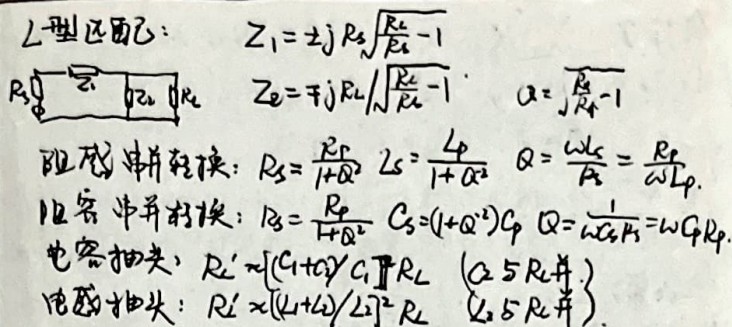 L-型匹配: Z₁=±jRs√(RL/Rs -1)
Rs Z₁ Z₂ RL Z₂=∓jRL/√(RL/Rs -1) Q=√(Rs/Rp -1)
阻感串并转换: Rs=Rp/(1+Q²) Ls=Lp/(1+Q⁻²) Q=ωLs/Rs=Rp/ωLp.
阻容串并转换: Rs=Rp/(1+Q²) Cs=(1+Q⁻²)Cp Q=1/ωCsRs=ωCpRp.
电容抽头: RL'≈[(C₁+C₂)/C₁]²RL (C₂与RL并)
电感抽头: RL'≈[(L₁+L₂)/L₂]²RL (L₂与RL并).